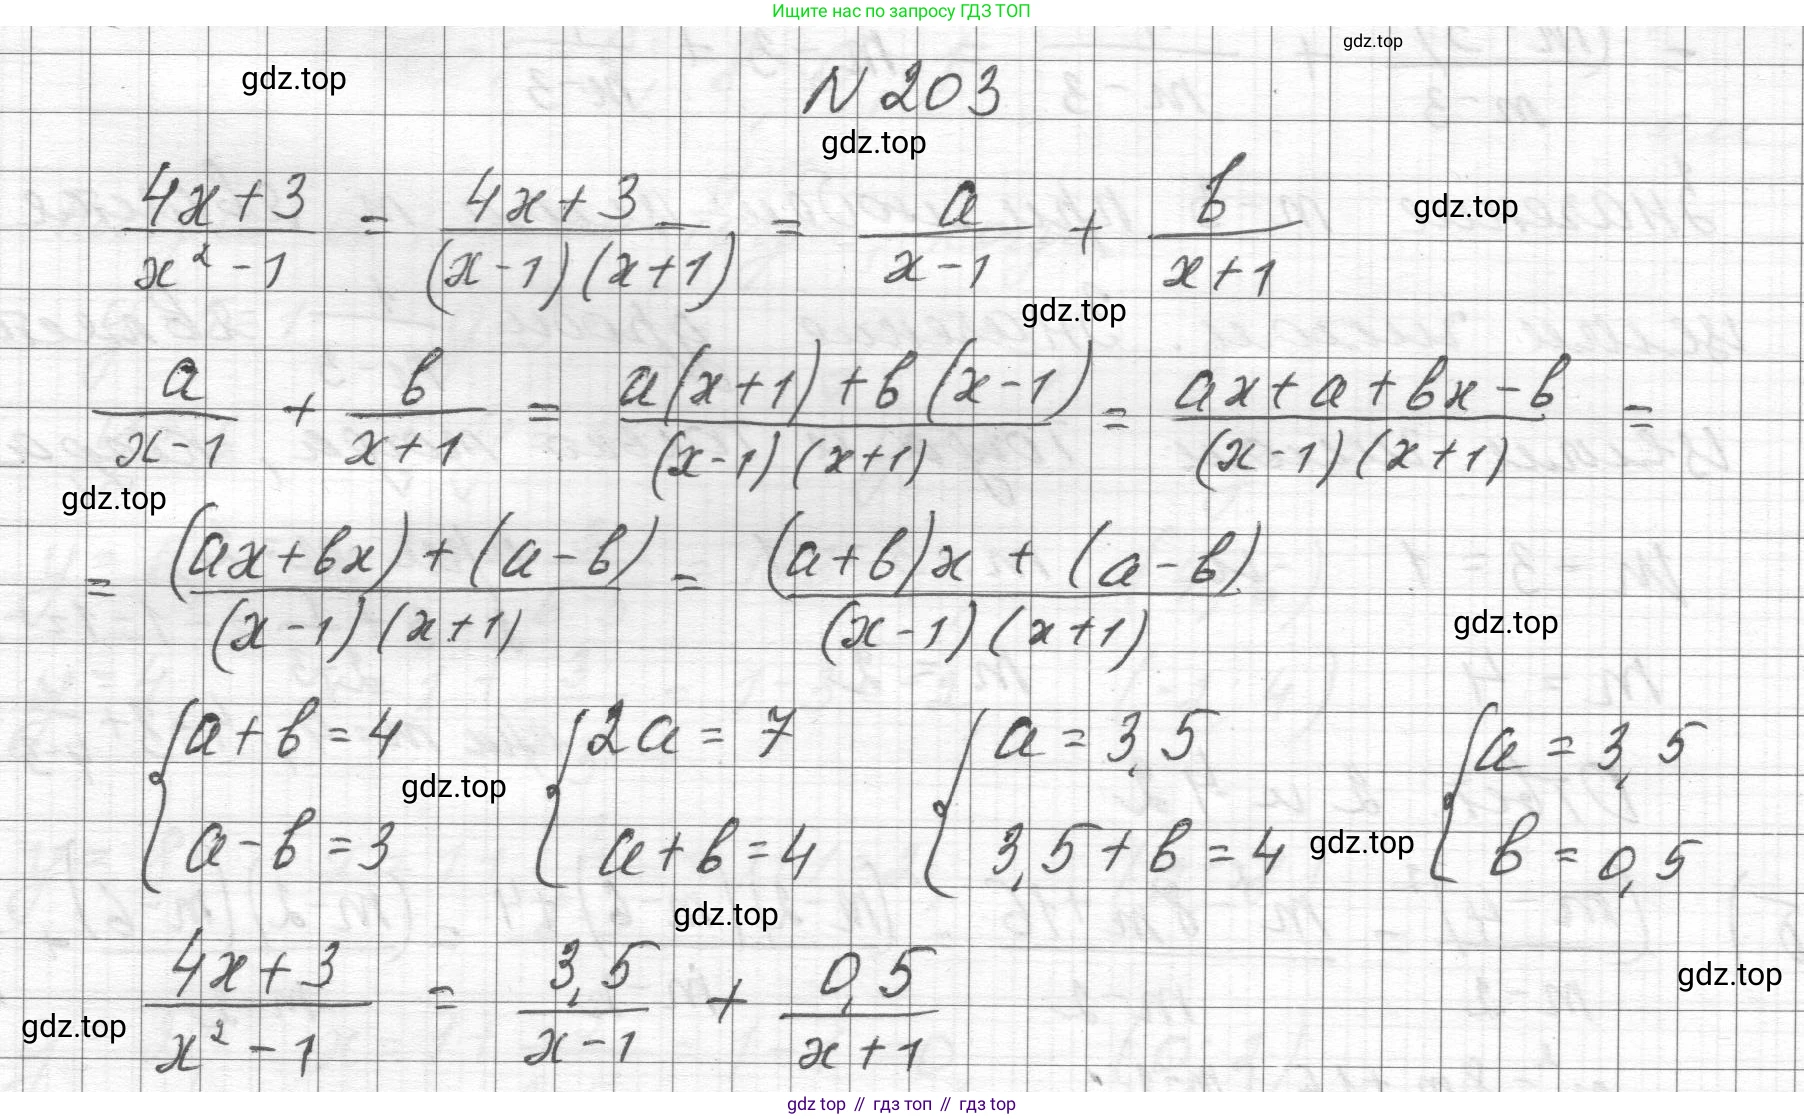 Ищите нас по запросу ГДЗ ТОП
gdz.top
gdz.top
N 203
gdz.top
(4x+3)/(x²-1) = (4x+3)/((x-1)(x+1)) = a/(x-1) + b/(x+1)
gdz.top
gdz.top
a/(x-1) + b/(x+1) = (a(x+1)+b(x-1))/((x-1)(x+1)) = (ax+a+bx-b)/((x-1)(x+1)) =
gdz.top
= ((ax+bx)+(a-b))/((x-1)(x+1)) = ((a+b)x+(a-b))/((x-1)(x+1))
gdz.top
{a+b=4 {2a=7 {a=3,5 {a=3,5
gdz.top
a-b=3 a+b=4 3,5+b=4 b=0,5
gdz.top
gdz.top
(4x+3)/(x²-1) = 3,5/(x-1) + 0,5/(x+1)
gdz.top
gdz.top
gdz top // гдз топ // гдз top